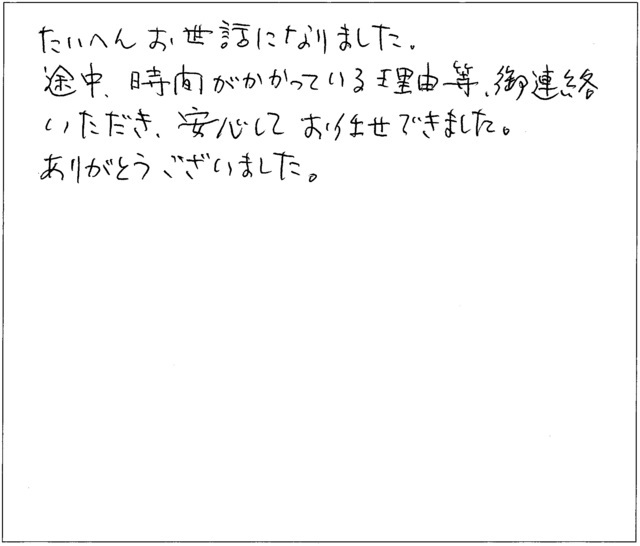 たいへんお世話になりました。
途中、時間がかかっている理由等、御連絡
いただき、安心して お任せできました。
ありがとうございました。